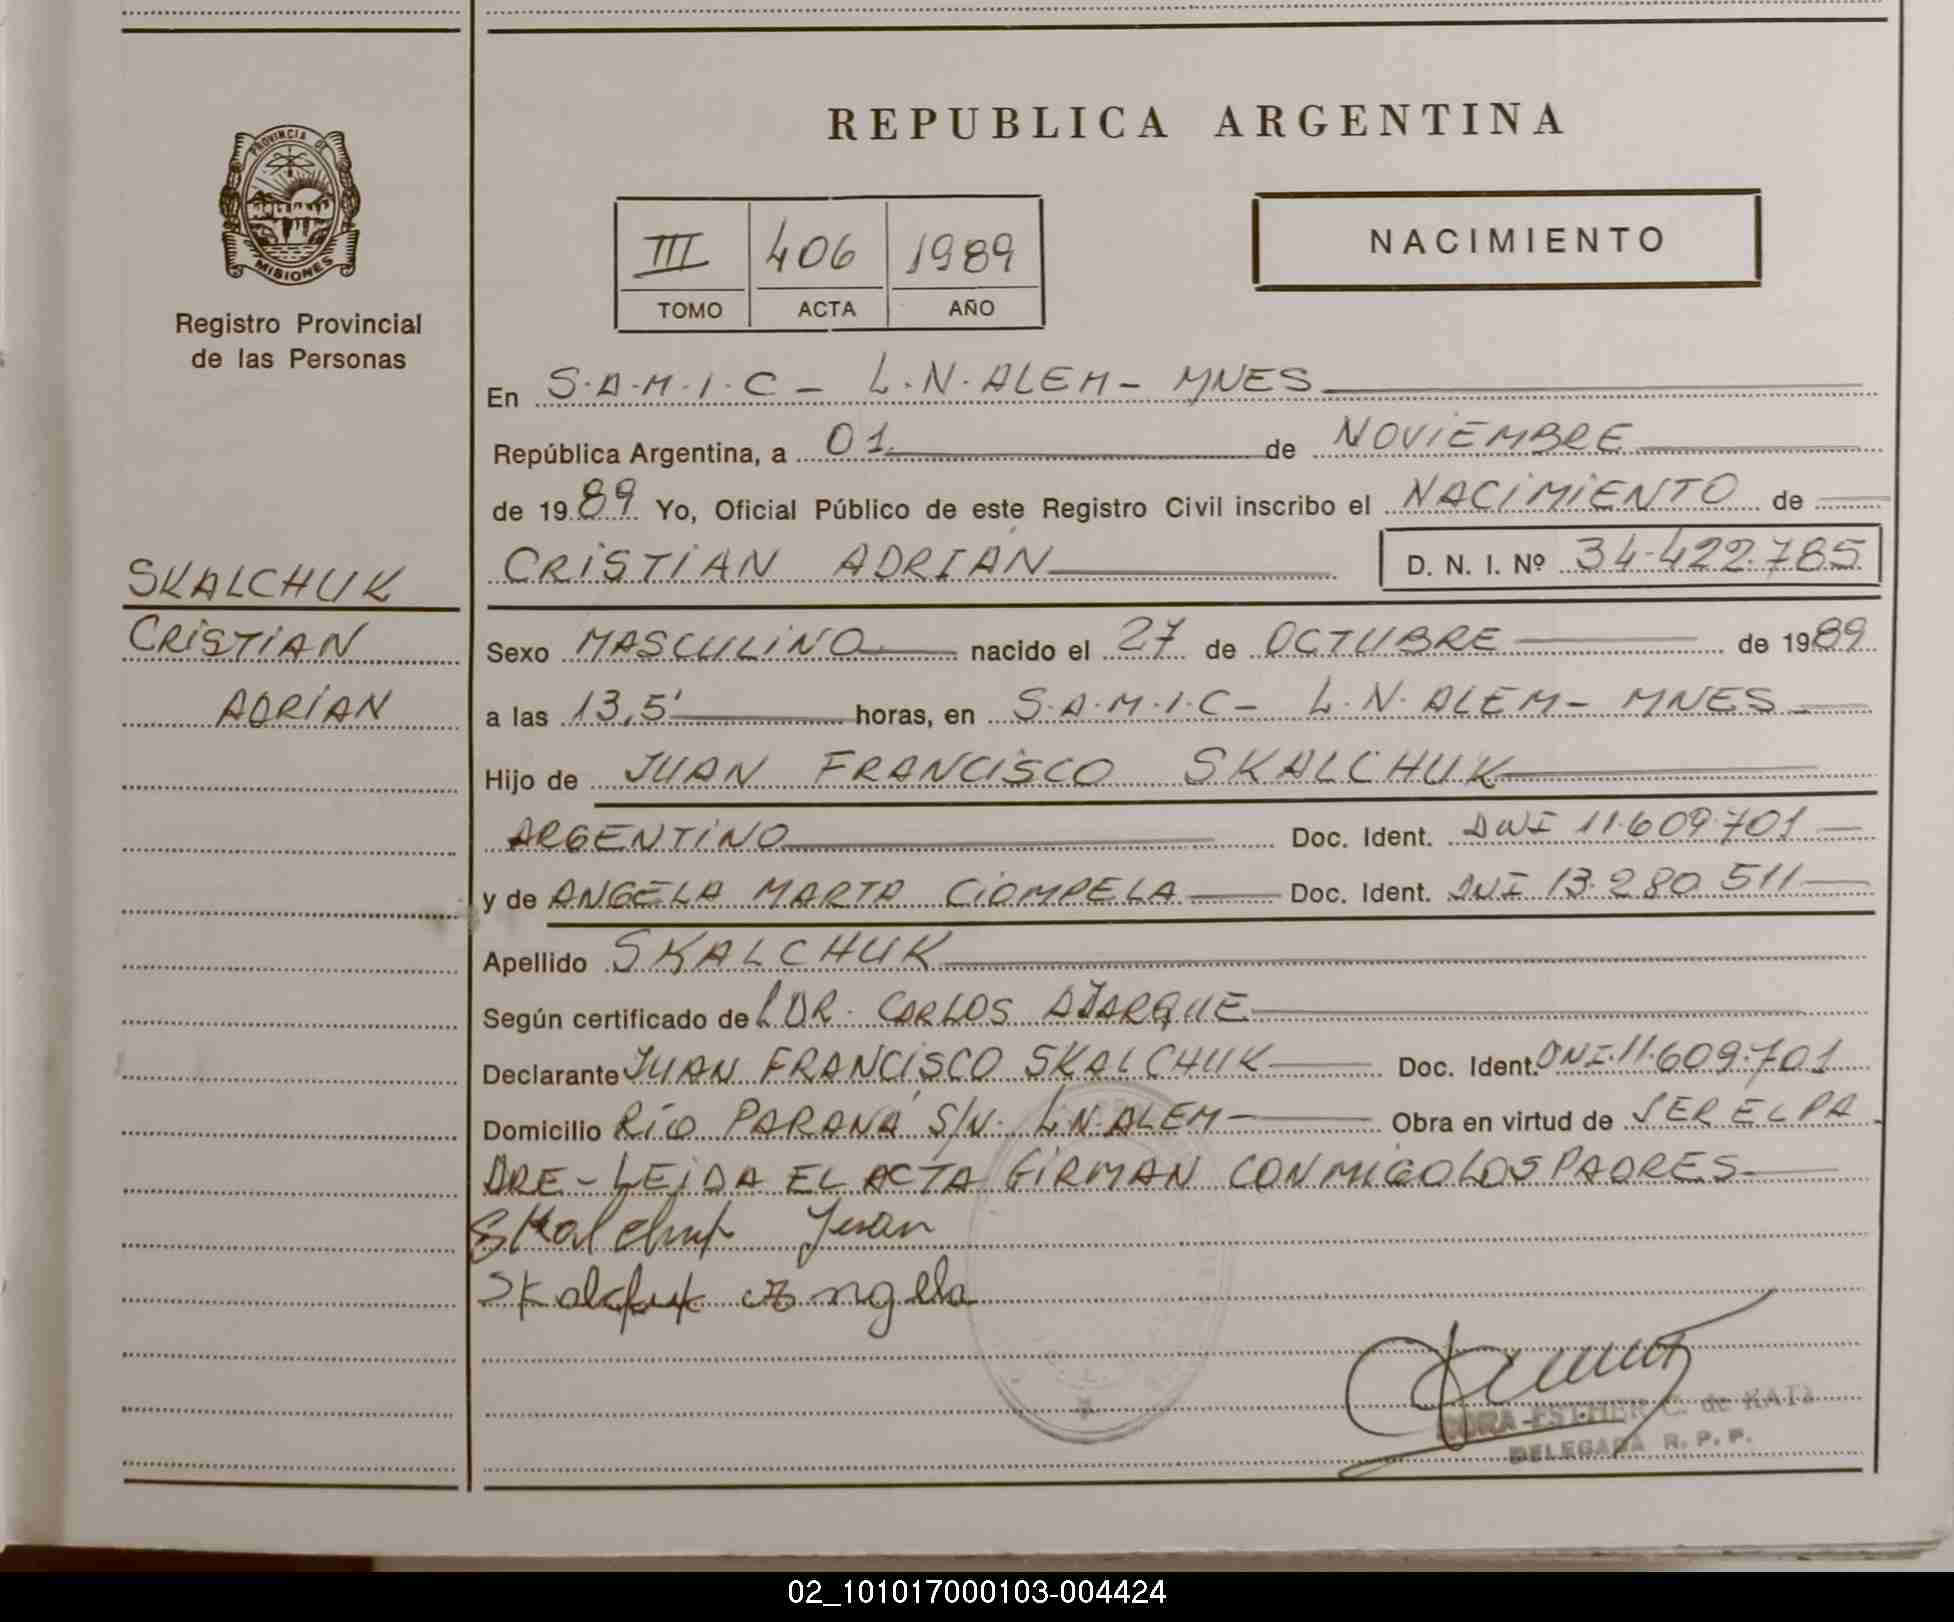 REPUBLICA ARGENTINA
PROVINCIA DE
MISIONES
Registro Provincial
de las Personas
III 406 1989
TOMO ACTA AÑO
NACIMIENTO
En S.A.M.I.C - L.N.ALEM - MNES
República Argentina, a 01 de NOVIEMBRE
de 1989 Yo, Oficial Público de este Registro Civil inscribo el NACIMIENTO de
CRISTIAN ADRIAN D. N. I. Nº 34.422.785
SKALCHUK
CRISTIAN
ADRIAN
Sexo MASCULINO nacido el 27 de OCTUBRE de 1989
a las 13,5' horas, en S.A.M.I.C - L.N.ALEM - MNES
Hijo de JUAN FRANCISCO SKALCHUK
ARGENTINO Doc. Ident. DNI 11.609.701
y de ANGELA MARTA CIOMPELA Doc. Ident. DNI 13.280.511
Apellido SKALCHUK
Según certificado de DR. CARLOS AJARQUE
Declarante JUAN FRANCISCO SKALCHUK Doc. Ident. DNI.11.609.701
Domicilio RÍO PARANÁ S/N. L.N.ALEM Obra en virtud de SER EL PA
DRE - LEIDA EL ACTA FIRMAN CONMIGO LOS PADRES
Skalchuk Juan
Skalchuk Angela
DORA ESTHER C. de KATZ
DELEGADA R. P. P.
02_101017000103-004424